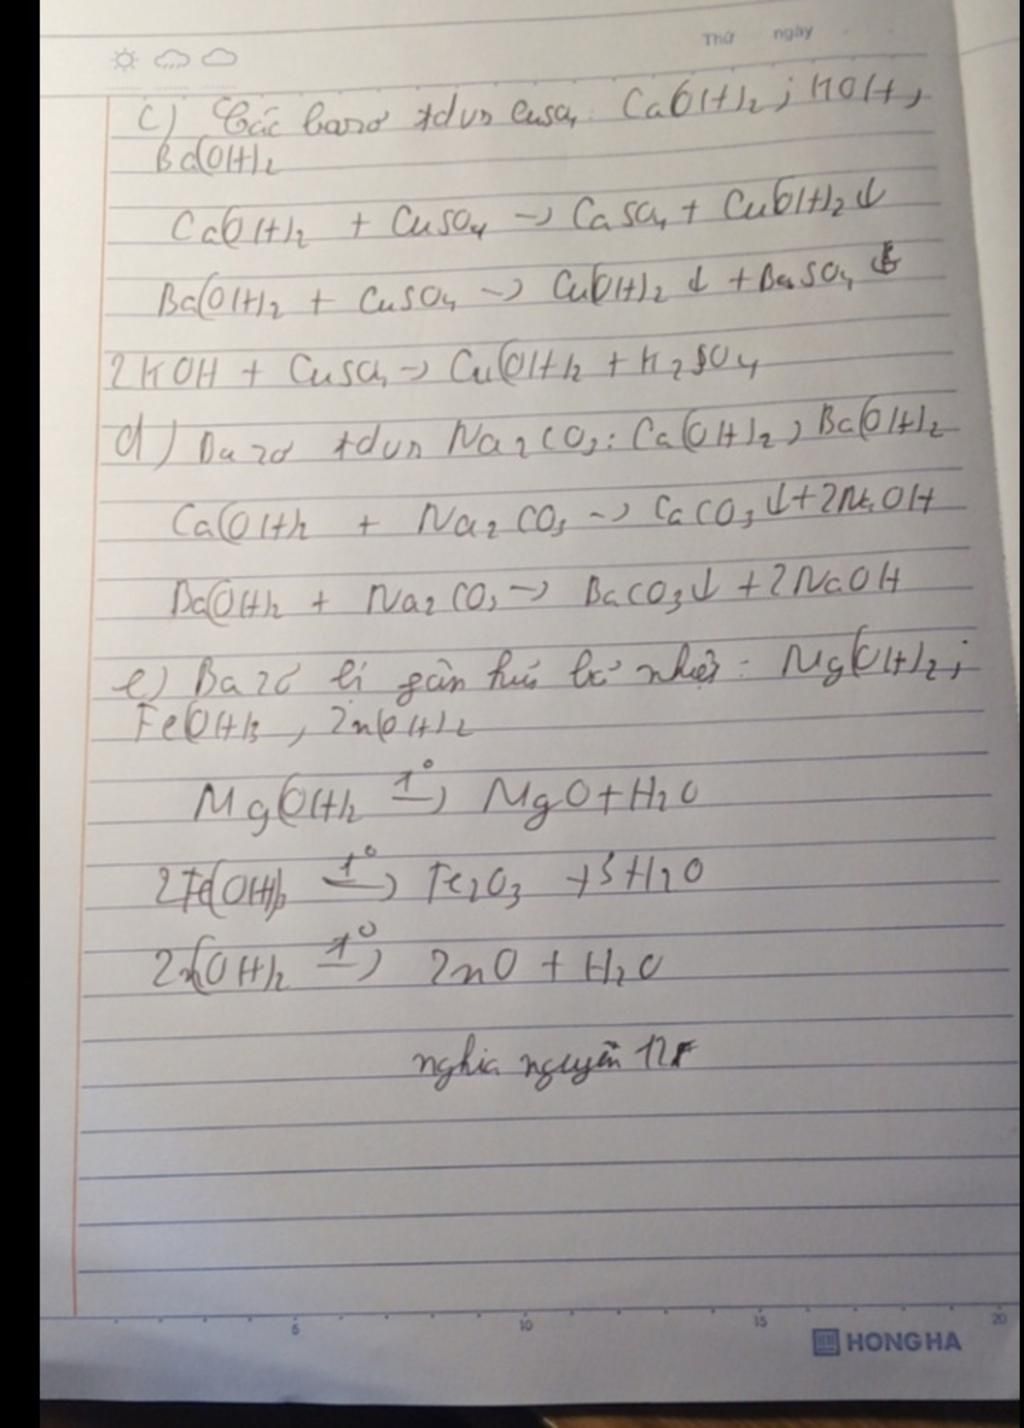 Thứ ngày
c) Các bazơ tdụng CuSO4: Ca(OH)2; KOH,
Ba(OH)2
Ca(OH)2 + CuSO4 -> CaSO4 + Cu(OH)2 ↓
Ba(OH)2 + CuSO4 -> Cu(OH)2 ↓ + BaSO4 ↓
2KOH + CuSO4 -> Cu(OH)2 + K2SO4
d) Bazơ tdụng Na2CO3: Ca(OH)2, Ba(OH)2
Ca(OH)2 + Na2CO3 -> CaCO3 ↓ + 2NaOH
Ba(OH)2 + Na2CO3 -> BaCO3 ↓ + 2NaOH
e) Bazơ bị phân huỷ bởi nhiệt: Mg(OH)2;
Fe(OH)3, Zn(OH)2
Mg(OH)2 t°-> MgO + H2O
2Fe(OH)3 t°-> Fe2O3 + 3H2O
Zn(OH)2 t°-> ZnO + H2O
nghia nguyễn
5 10 15 20
HONG HA